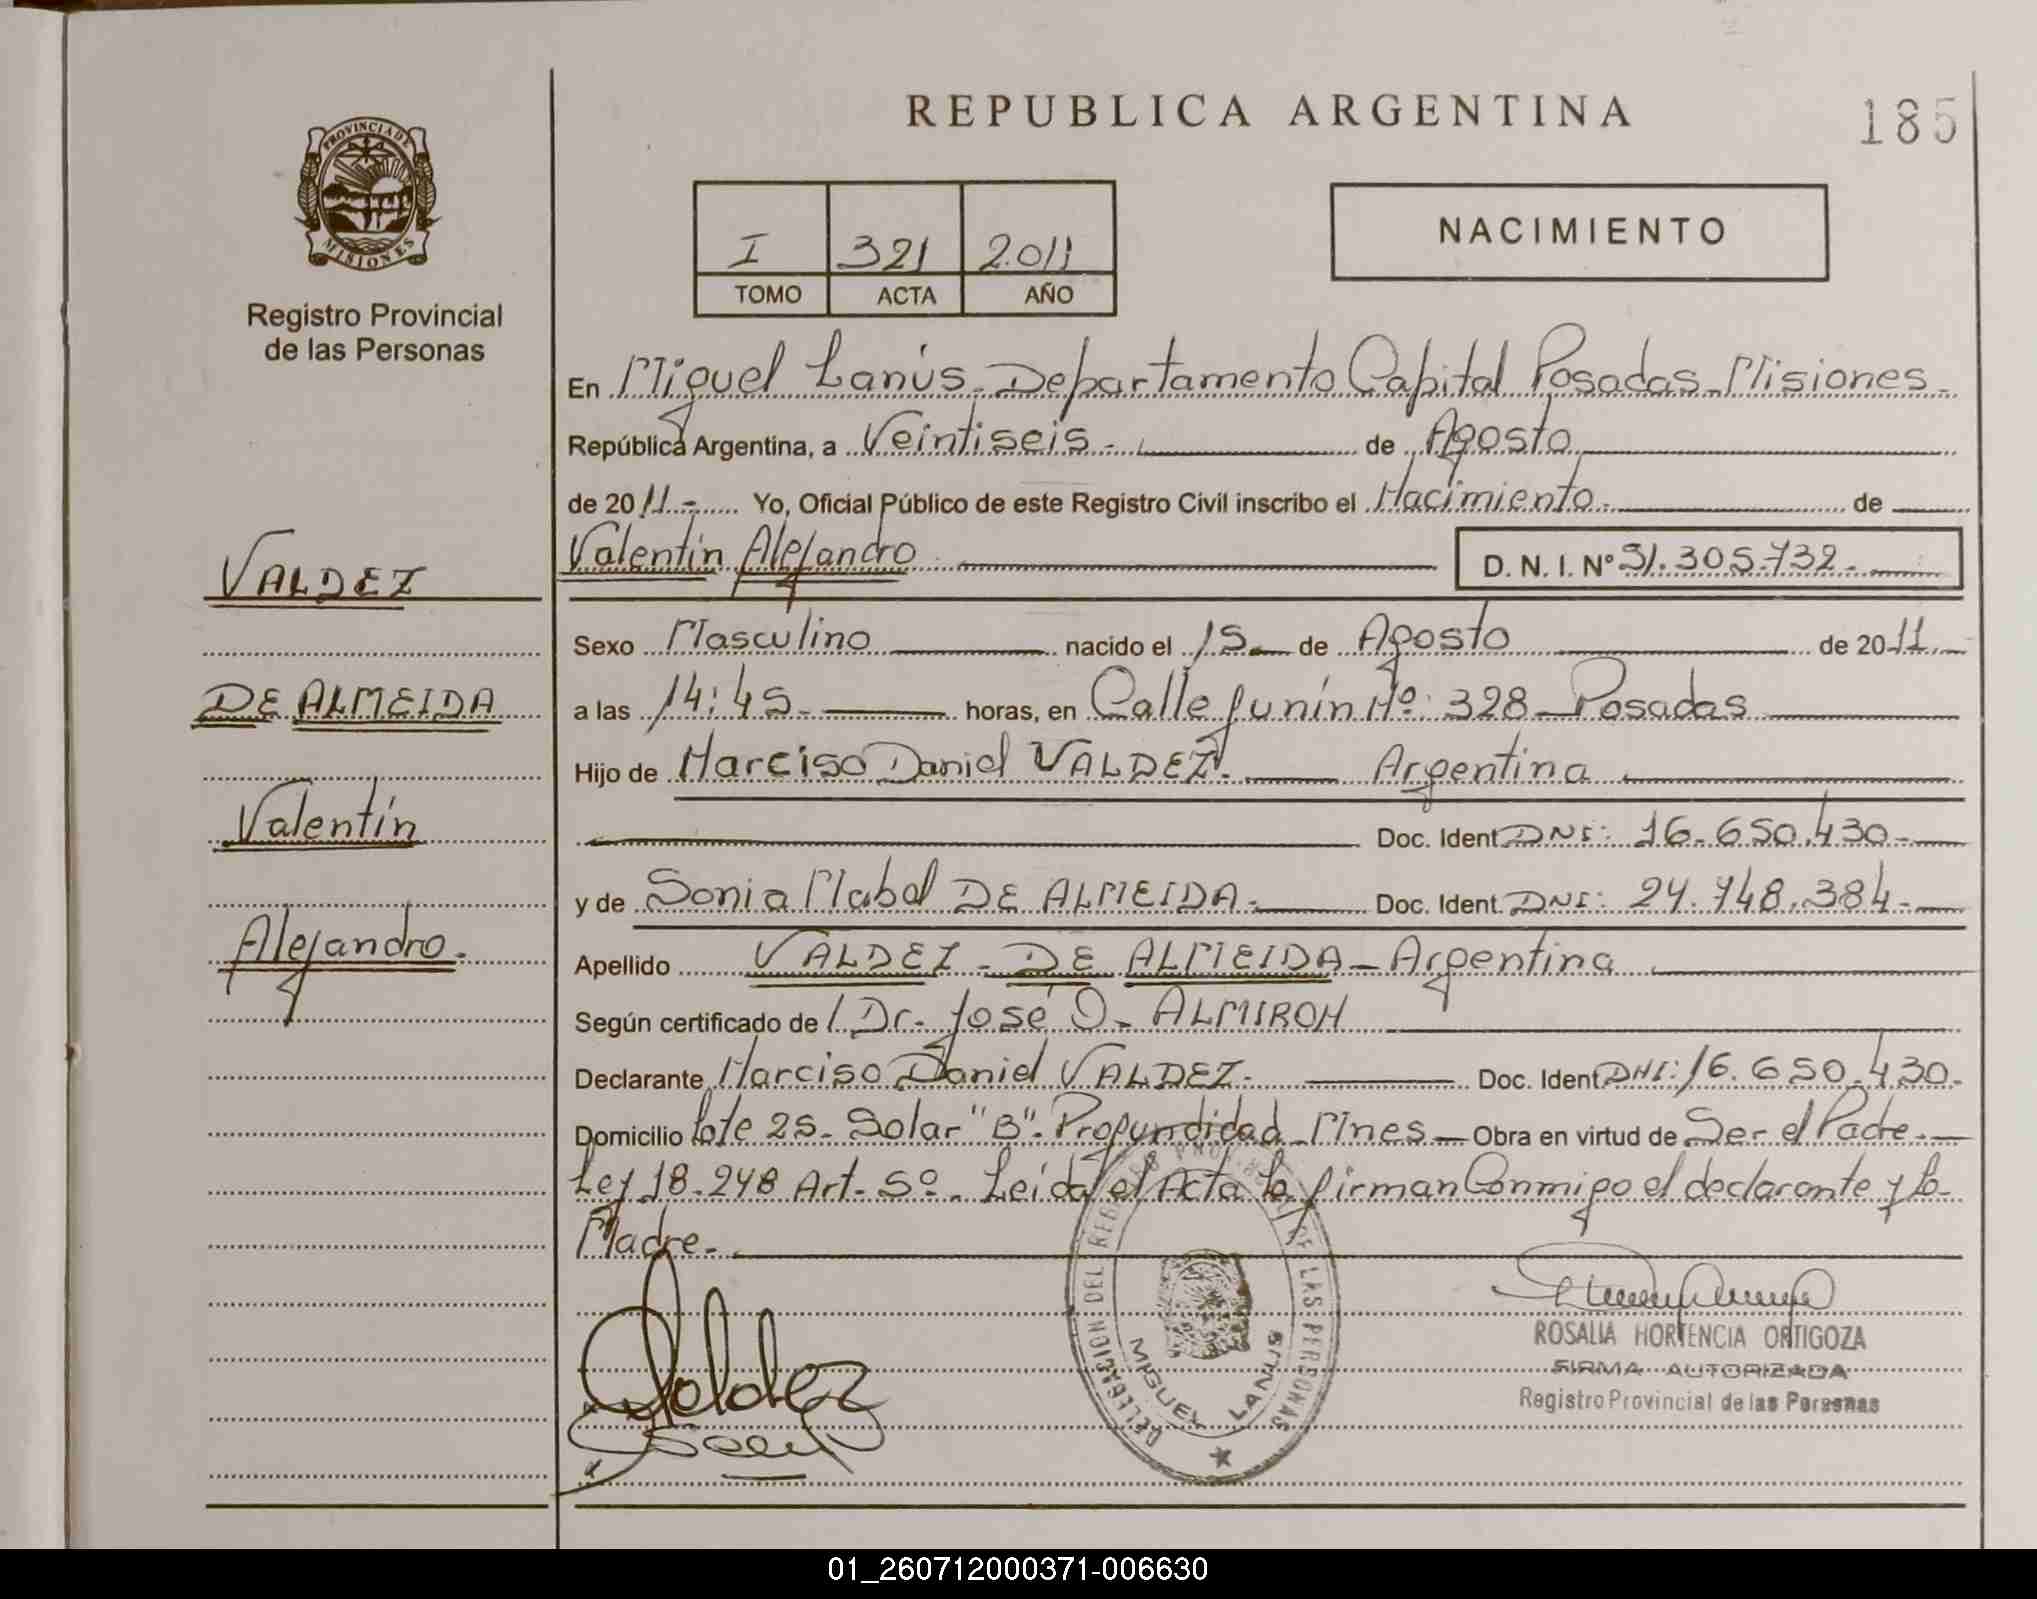 REPUBLICA ARGENTINA
185
PROVINCIA DE
MISIONES
Registro Provincial
de las Personas
NACIMIENTO
I 321 2.011
TOMO ACTA AÑO
En Miguel Lanús. Departamento Capital Posadas Misiones.
República Argentina, a Veintiseis. de Agosto
de 2011.- Yo, Oficial Público de este Registro Civil inscribo el Nacimiento. de
Valentín Alejandro D. N. I. Nº 51.305.732.
VALDEZ
Sexo Masculino nacido el 15 de Agosto de 2011
DE ALMEIDA
a las 14:45. horas, en Calle Junín Nº 328 Posadas
Hijo de Narciso Daniel VALDEZ. Argentina
Valentín
Doc. Ident DNI: 16.650.430.-
y de Sonia Mabel DE ALMEIDA. Doc. Ident. DNI: 24.748.384.-
Alejandro.
Apellido VALDEZ - DE ALMEIDA - Argentina
Según certificado de Dr. José O. ALMIRON
Declarante Narciso Daniel VALDEZ. Doc. Ident DNI: 16.650.430.
Domicilio lote 25. Solar "B". Profundidad Mnes - Obra en virtud de Ser el Padre.
Ley 18.248 Art. 5º. Leída el Acta la firman Conmigo el declarante y la
Madre.
Valdez
DELEGACION DEL REGISTRO PROV. DE LAS PERSONAS
MIGUEL LANUS
ROSALIA HORTENCIA ORTIGOZA
FIRMA AUTORIZADA
Registro Provincial de las Personas
01_260712000371-006630